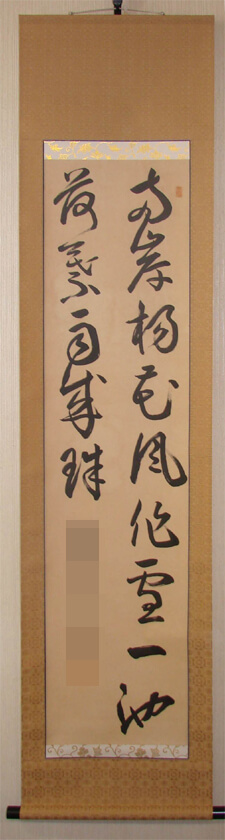 両岸楊花風作雪一池
荷葉雨成珠